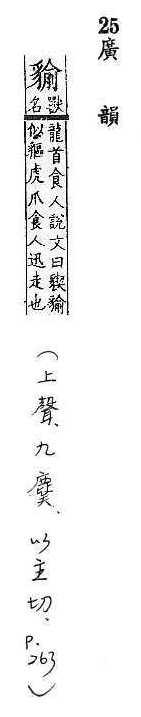 25 廣韻
貐
獸龍首食人說文曰䝟貐
名似貙虎爪食人迅走也
（上聲、九麌、以主切、P.263）